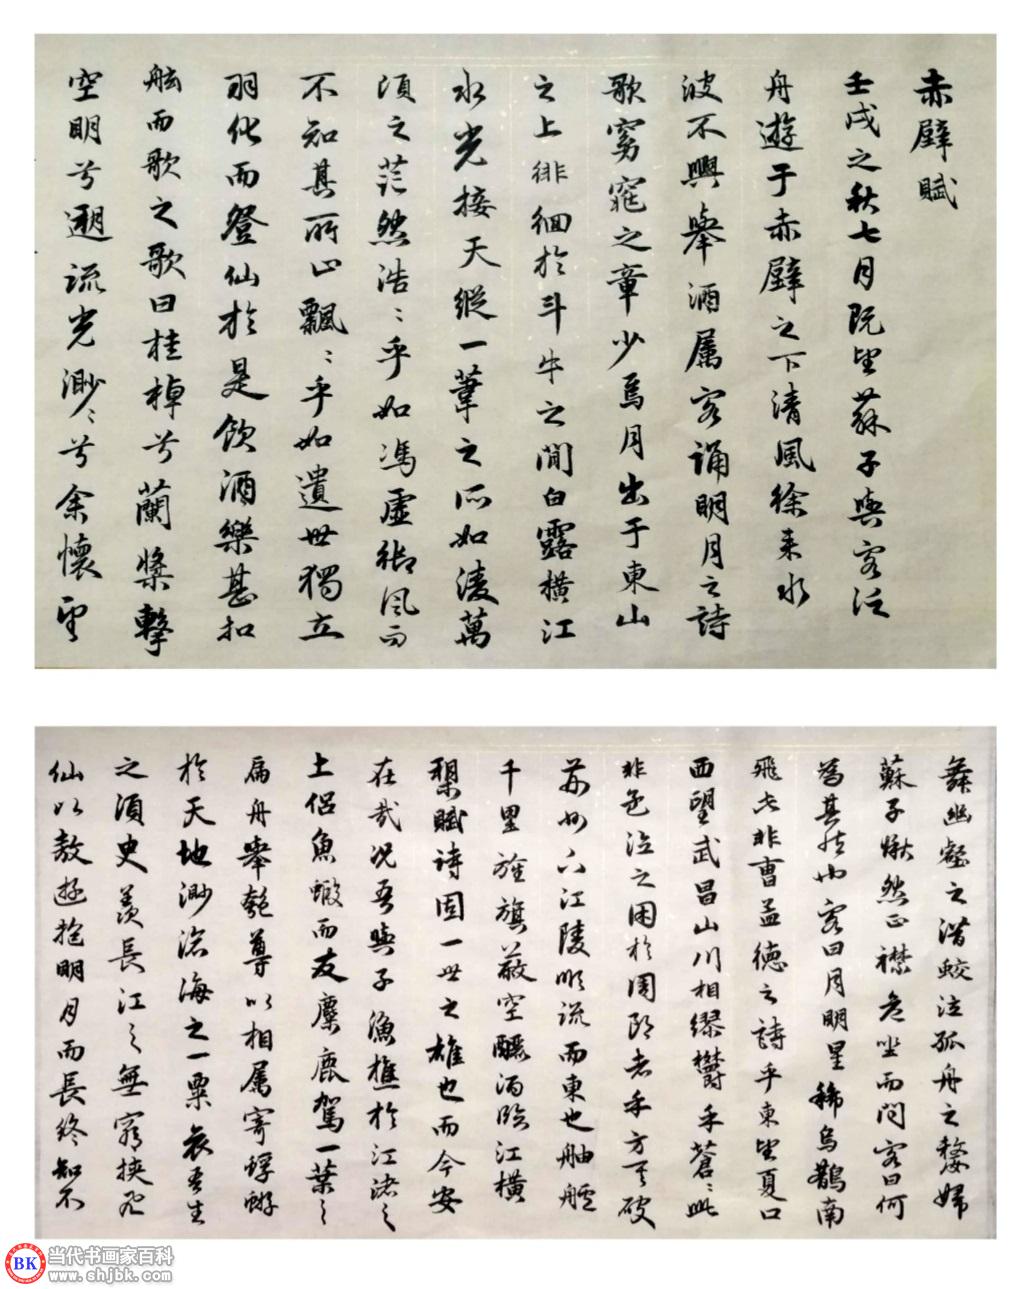 赤壁賦
壬戌之秋七月既望蘇子與客泛
舟遊于赤壁之下清風徐来水
波不興舉酒属客誦明月之詩
歌窈窕之章少焉月出于東山
之上徘徊於斗牛之間白露橫江
水光接天縱一葦之所如淩萬
頃之茫然浩〻乎如馮虛御風而
不知其所止飄〻乎如遺世獨立
羽化而登仙於是飲酒樂甚扣
舷而歌之歌曰桂棹兮蘭槳擊
空明兮遡流光渺〻兮余懷望
舞幽壑之潛蛟泣孤舟之嫠婦
蘇子愀然正襟危坐而問客曰何
為其然也客曰月明星稀烏鵲南
飛此非曹孟德之詩乎東望夏口
西望武昌山川相繆欝乎蒼〻此
非孟德之困於周郎者乎方其破
荊州下江陵順流而東也舳艫
千里旌旗蔽空釃酒臨江橫
槊賦詩固一世之雄也而今安
在哉况吾與子漁樵於江渚之
上侶魚蝦而友麋鹿駕一葉之
扁舟舉匏尊以相属寄蜉蝣
於天地渺滄海之一粟哀吾生
之須臾羨長江之無窮挾飛
仙以敖遊抱明月而長終知不
BK 当代书画家百科
www.shjbk.com